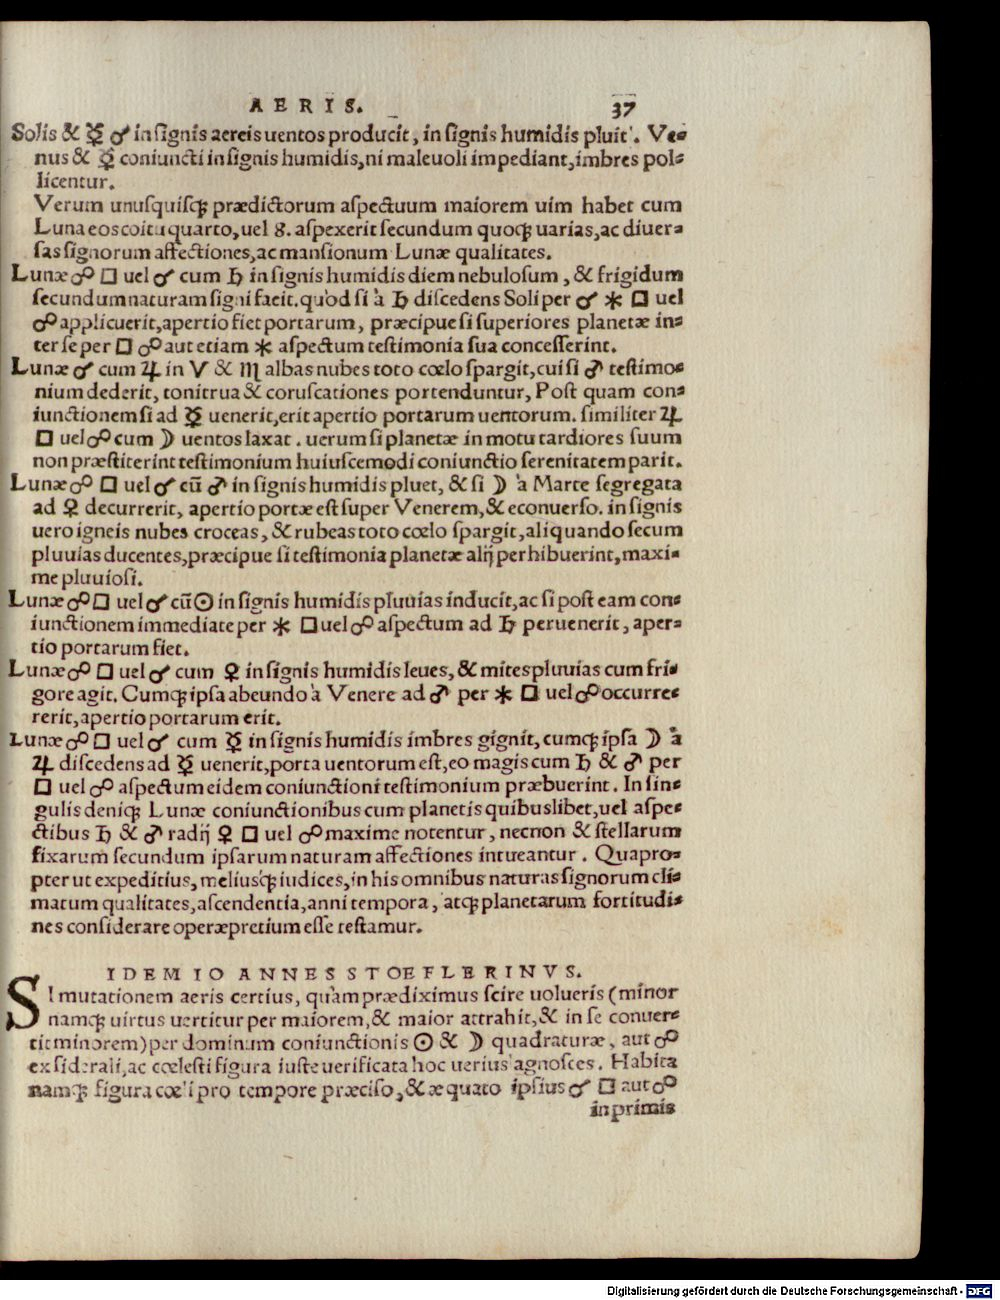 AERIS. 37
Solis & ☿ ☌ in signis aereis uentos producit, in signis humidis pluit. Ve-
nus & ☿ coniuncti in signis humidis, ni maleuoli impediant, imbres pol-
licentur.
Verum unusquisq; prædictorum aspectuum maiorem uim habet cum
Luna eos coitu quarto, uel 8. aspexerit secundum quoq; uarias, ac diuer-
sas signorum affectiones, ac mansionum Lunæ qualitates.
Lunæ ☍ □ uel ☌ cum ♄ in signis humidis diem nebulosum, & frigidum
secundum naturam signi facit. quòd si à ♄ discedens Soli per ☌ ⚹ □ uel
☍ applicuerit, apertio fiet portarum, præcipue si superiores planetæ in-
ter se per □ ☍ aut etiam ⚹ aspectum testimonia sua concesserint.
Lunæ ☌ cum ♃ in V & ♏ albas nubes toto cœlo spargit, cui si ♂ testimo-
nium dederit, tonitrua & coruscationes portenduntur, Post quam con-
iunctionem si ad ☿ uenerit, erit apertio portarum uentorum. similiter ♃
□ uel ☍ cum ☽ uentos laxat. uerum si planetæ in motu tardiores suum
non præstiterint testimonium huiuscemodi coniunctio serenitatem parit.
Lunæ ☍ □ uel ☌ cū ♂ in signis humidis pluet, & si ☽ à Marte segregata
ad ♀ decurrerit, apertio portæ est super Venerem, & econuerso. in signis
uero igneis nubes croceas, & rubeas toto cœlo spargit, aliquando secum
pluuias ducentes, præcipue si testimonia planetæ alij perhibuerint, maxi-
me pluuiosi.
Lunæ ☍ □ uel ☌ cū ☉ in signis humidis pluuias inducit, ac si post eam con-
iunctionem immediate per ⚹ □ uel ☍ aspectum ad ♄ peruenerit, aper-
tio portarum fiet.
Lunæ ☍ □ uel ☌ cum ♀ in signis humidis leues, & mites pluuias cum fri-
gore agit. Cumq; ipsa abeundo à Venere ad ♂ per ⚹ □ uel ☍ occurre-
rerit, apertio portarum erit.
Lunæ ☍ □ uel ☌ cum ☿ in signis humidis imbres gignit, cumq; ipsa ☽ à
♃ discedens ad ☿ uenerit, porta uentorum est, eo magis cum ♄ & ♂ per
□ uel ☍ aspectum eidem coniunctioni testimonium præbuerint. In sin-
gulis deniq; Lunæ coniunctionibus cum planetis quibuslibet, uel aspe-
ctibus ♄ & ♂ radij ♀ □ uel ☍ maxime notentur, necnon & stellarum
fixarum secundum ipsarum naturam affectiones intueantur. Quapro-
pter ut expeditius, meliusq; iudices, in his omnibus naturas signorum cli-
matum qualitates, ascendentia, anni tempora, atq; planetarum fortitudi-
nes considerare operæpretium esse testamur.
IDEM IOANNES STOEFLERINVS.
SI mutationem aeris certius, quàm prædiximus scire uolueris (minor
namq; uirtus uertitur per maiorem, & maior attrahit, & in se conuer-
tit minorem) per dominum coniunctionis ☉ & ☽ quadraturæ, aut ☍
ex siderali, ac cœlesti figura iuste uerificata hoc uerius agnosces. Habita
namq; figura cœli pro tempore præciso, & æquato ipsius ☌ □ aut ☍
inprimis
Digitalisierung gefördert durch die Deutsche Forschungsgemeinschaft - DFG